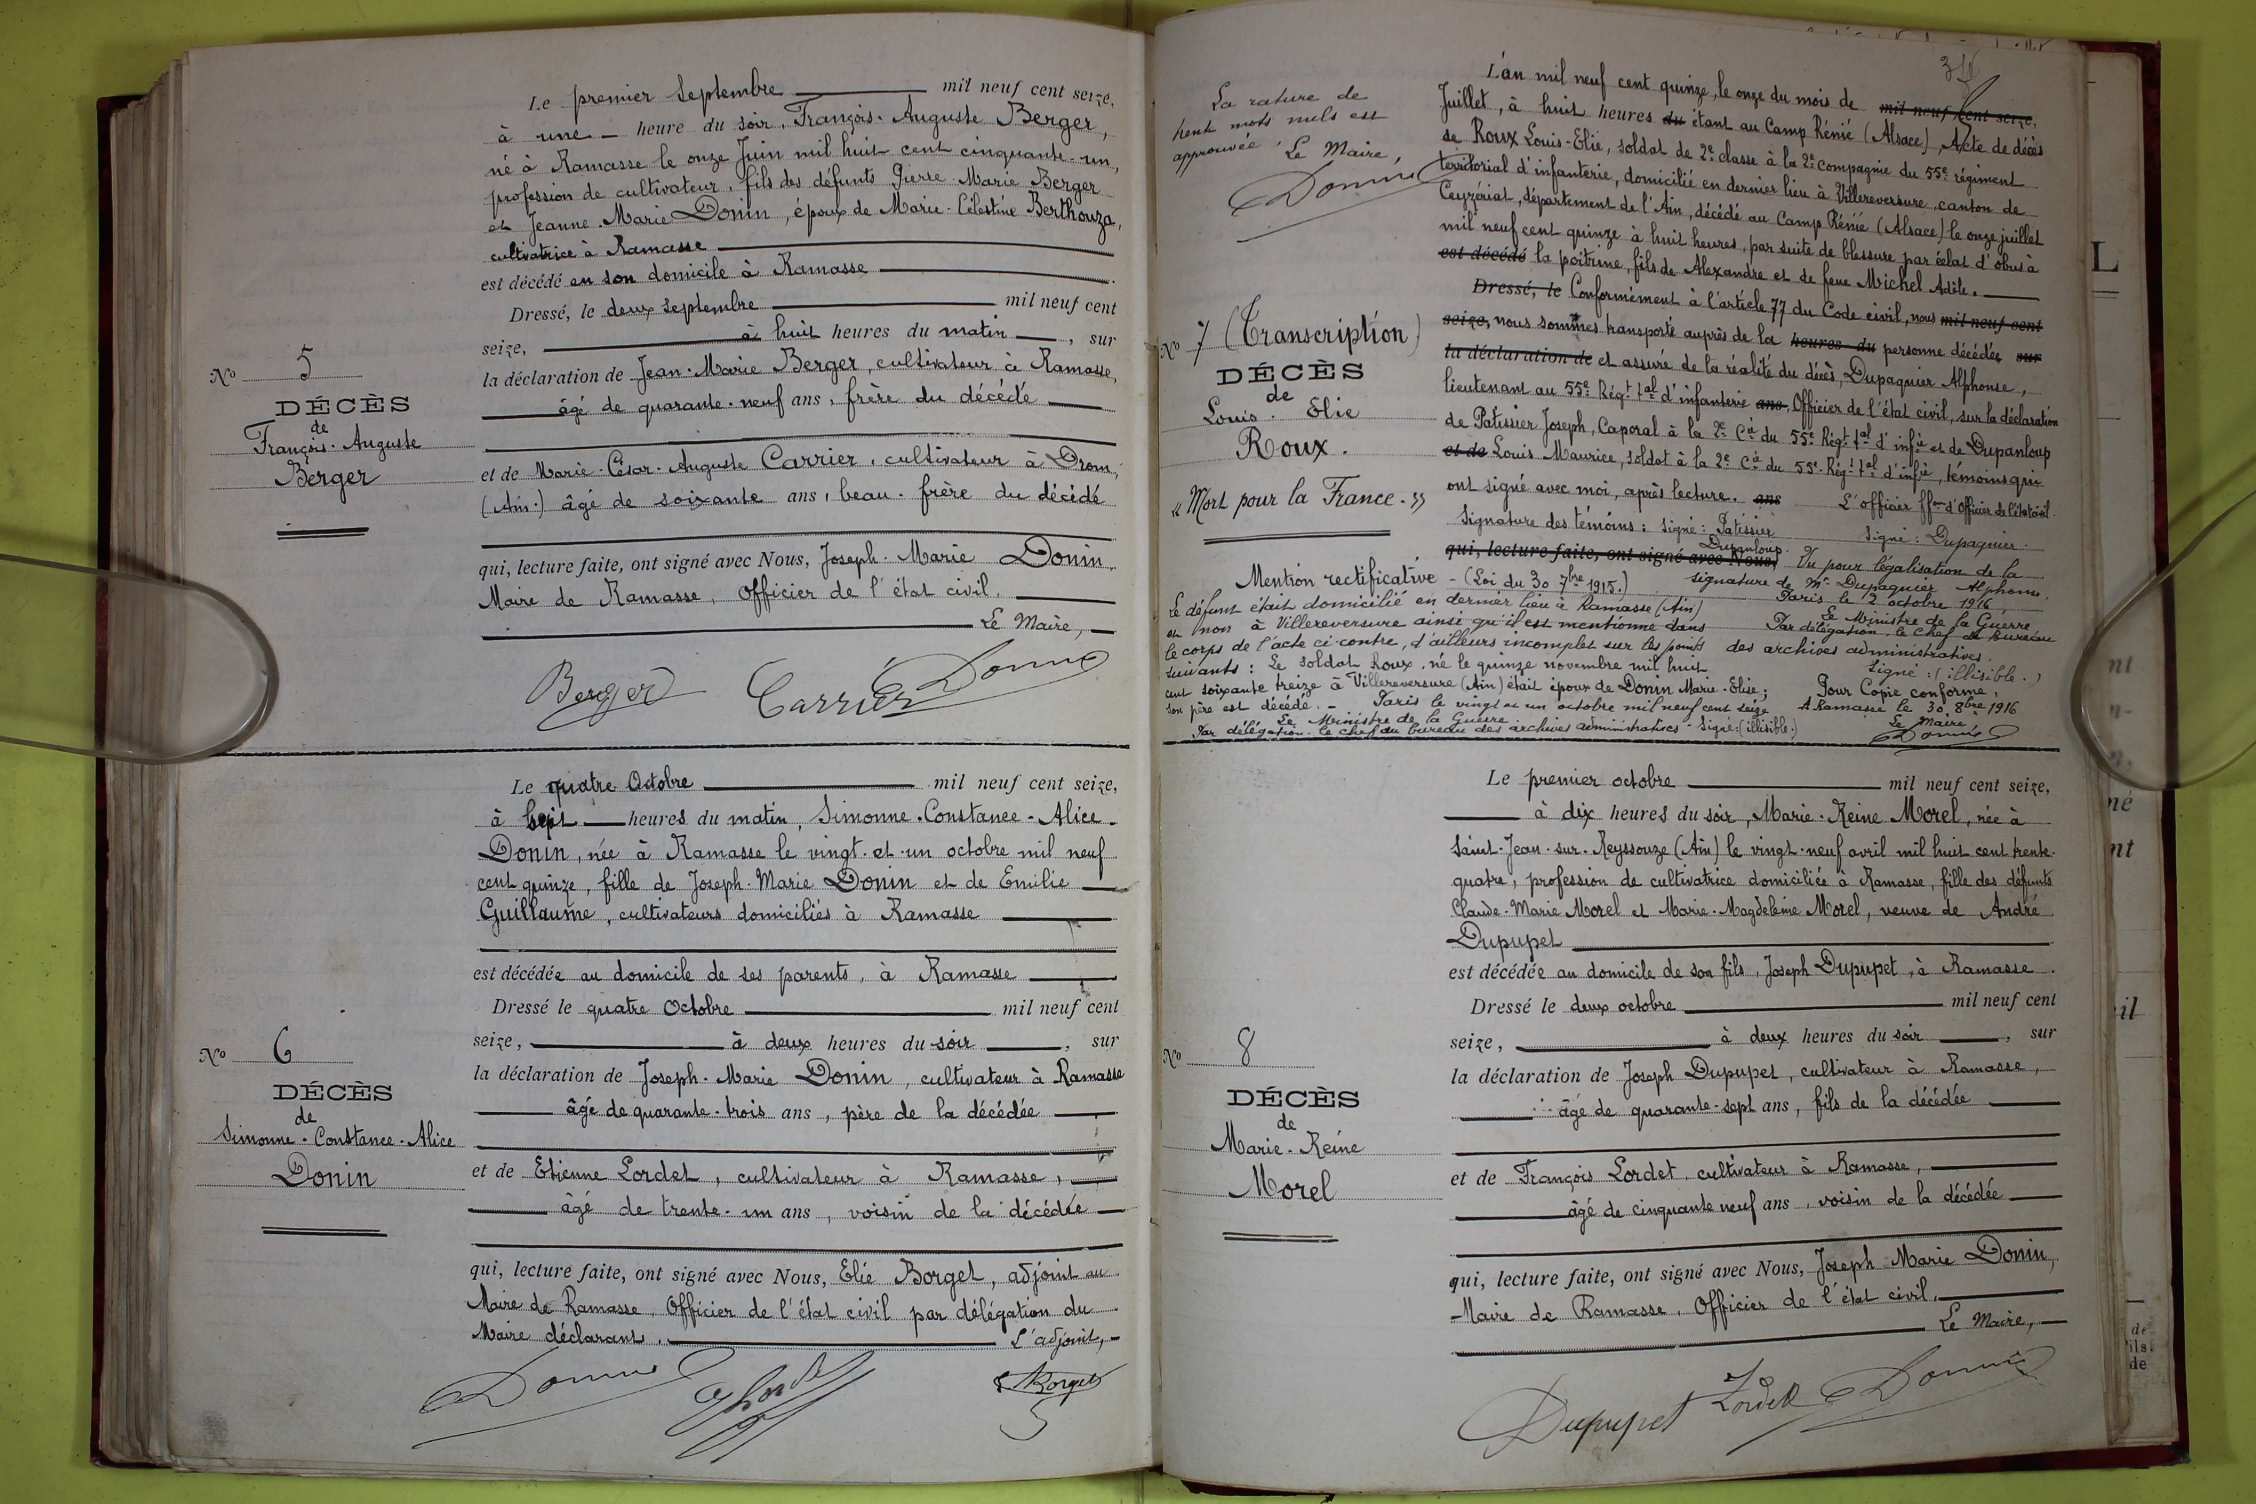 Le premier Septembre mil neuf cent seize,
à une heure du soir, François-Auguste Berger,
né à Ramasse le onze Juin mil huit cent cinquante-un,
profession de cultivateur, fils des défunts Pierre-Marie Berger
et Jeanne-Marie Donin, époux de Marie-Célestine Berthouza,
cultivatrice à Ramasse
est décédé en son domicile à Ramasse
Dressé, le deux septembre mil neuf cent
seize, à huit heures du matin, sur
la déclaration de Jean-Marie Berger, cultivateur à Ramasse,
âgé de quarante-neuf ans, frère du décédé
et de Marie-César-Auguste Carrier, cultivateur à Drom,
(Ain.) âgé de soixante ans, beau-frère du décédé
qui, lecture faite, ont signé avec Nous, Joseph-Marie Donin
Maire de Ramasse, Officier de l'état civil.
Le Maire,
Berger Carrier Donin
No 5
DÉCÈS
de
François-Auguste
Berger
Le quatre Octobre mil neuf cent seize,
à sept heures du matin, Simonne-Constance-Alice
Donin, née à Ramasse le vingt-et-un octobre mil neuf
cent quinze, fille de Joseph-Marie Donin et de Emilie
Guillaume, cultivateurs domiciliés à Ramasse
est décédée au domicile de ses parents, à Ramasse
Dressé le quatre Octobre mil neuf cent
seize, à deux heures du soir, sur
la déclaration de Joseph-Marie Donin, cultivateur à Ramasse
âgé de quarante-trois ans, père de la décédée
et de Etienne Lordet, cultivateur à Ramasse,
âgé de trente-un ans, voisin de la décédée
qui, lecture faite, ont signé avec Nous, Elie Borget, adjoint au
Maire de Ramasse, Officier de l'état civil par délégation du
Maire déclarant. L'adjoint,
Donin Borget
No 6
DÉCÈS
de
Simonne-Constance-Alice
Donin
La rature de
huit mots nuls est
approuvée. Le Maire,
Donin
L'an mil neuf cent quinze, le onze du mois de mil neuf cent seize,
Juillet, à huit heures du étant au Camp Rénié (Alsace), Acte de décès
de Roux Louis-Elie, soldat de 2e classe à la 2e compagnie du 55e régiment
territorial d'infanterie, domicilié en dernier lieu à Villereversure, canton de
Ceyzériat, département de l'Ain, décédé au Camp Rénié (Alsace) le onze juillet
mil neuf cent quinze à huit heures, par suite de blessure par éclat d'obus à
est décédé la poitrine, fils de Alexandre et de feue Michel Adèle.
Dressé, le Conformément à l'article 77 du Code civil, nous mil neuf cent
seize, nous sommes transporté auprès de la heures du personne décédée sur
la déclaration de et assuré de la réalité du décès, Dupaquier Alphonse,
lieutenant au 55e Régt tal d'infanterie ans, Officier de l'état civil, sur la déclaration
de Patissier Joseph, Caporal à la 2e Cie du 55e Régt tal d'infie et de Dupanloup
et de Louis Maurice, soldat à la 2e Cie du 55e Régt tal d'infie, témoins qui
ont signé avec moi, après lecture. ans L'officier ffons d'Officier de l'état civil.
Signature des témoins: signé: Patissier Signé: Dupaquier.
Dupanloup.
qui, lecture faite, ont signé avec Nous, Vu pour légalisation de la
signature de Mr Dupaquier Alphonse.
Paris le 2 octobre 1916
Le Ministre de la Guerre
Par délégation, le Chef de Bureau
des archives administratives.
Signé: (illisible.)
Pour Copie conforme,
A Ramasse le 30 8bre 1916
Le Maire,
Donin
No 7 (Transcription)
DÉCÈS
de
Louis-Elie
Roux.
"Mort pour la France."
Mention rectificative - (Loi du 30 7bre 1915.)
Le défunt était domicilié en dernier lieu à Ramasse (Ain)
et non à Villereversure ainsi qu'il est mentionné dans
le corps de l'acte ci-contre, d'ailleurs incomplet sur les points
suivants: Le soldat Roux, né le quinze novembre mil huit
cent soixante treize à Villereversure (Ain) était époux de Donin Marie-Elise;
son père est décédé. - Paris le vingt et un octobre mil neuf cent seize
Le Ministre de la Guerre
Par délégation, le chef du bureau des archives administratives - Signé: (illisible.)
Le premier octobre mil neuf cent seize,
à dix heures du soir, Marie-Reine Morel, née à
Saint-Jean-sur-Reyssouze (Ain) le vingt-neuf avril mil huit cent trente-
quatre, profession de cultivatrice domiciliée à Ramasse, fille des défunts
Claude-Marie Morel et Marie-Magdeleine Morel, veuve de André
Dupupet
est décédée au domicile de son fils, Joseph Dupupet, à Ramasse.
Dressé le deux octobre mil neuf cent
seize, à deux heures du soir, sur
la déclaration de Joseph Dupupet, cultivateur à Ramasse,
âgé de quarante-sept ans, fils de la décédée
et de François Lordet, cultivateur à Ramasse,
âgé de cinquante neuf ans, voisin de la décédée
qui, lecture faite, ont signé avec Nous, Joseph Marie Donin,
Maire de Ramasse, Officier de l'état civil.
Le Maire,
Dupupet Lordet Donin
No 8
DÉCÈS
de
Marie-Reine
Morel